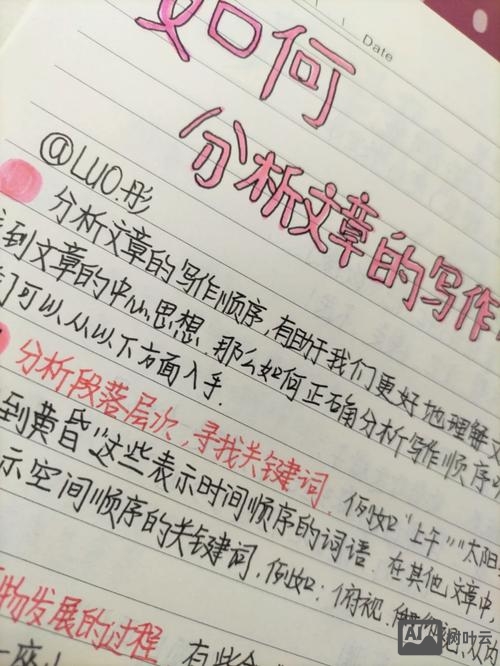 Date
如何
分析文章的写作
@LUO.彤
分析文章的写作顺序,有助于我们更好地理解文
到文章的中心思想.那么如何正确分析写作顺序
们可以从以下方面入手.
分析段落层次,寻找关键词.例如"上午""太阳
到黄昏"这些表示时间顺序的词语.在其他文章中,
示空间顺序的关键词.例如:俯视.
物发展的过程
有些
一座
AI
树叶云